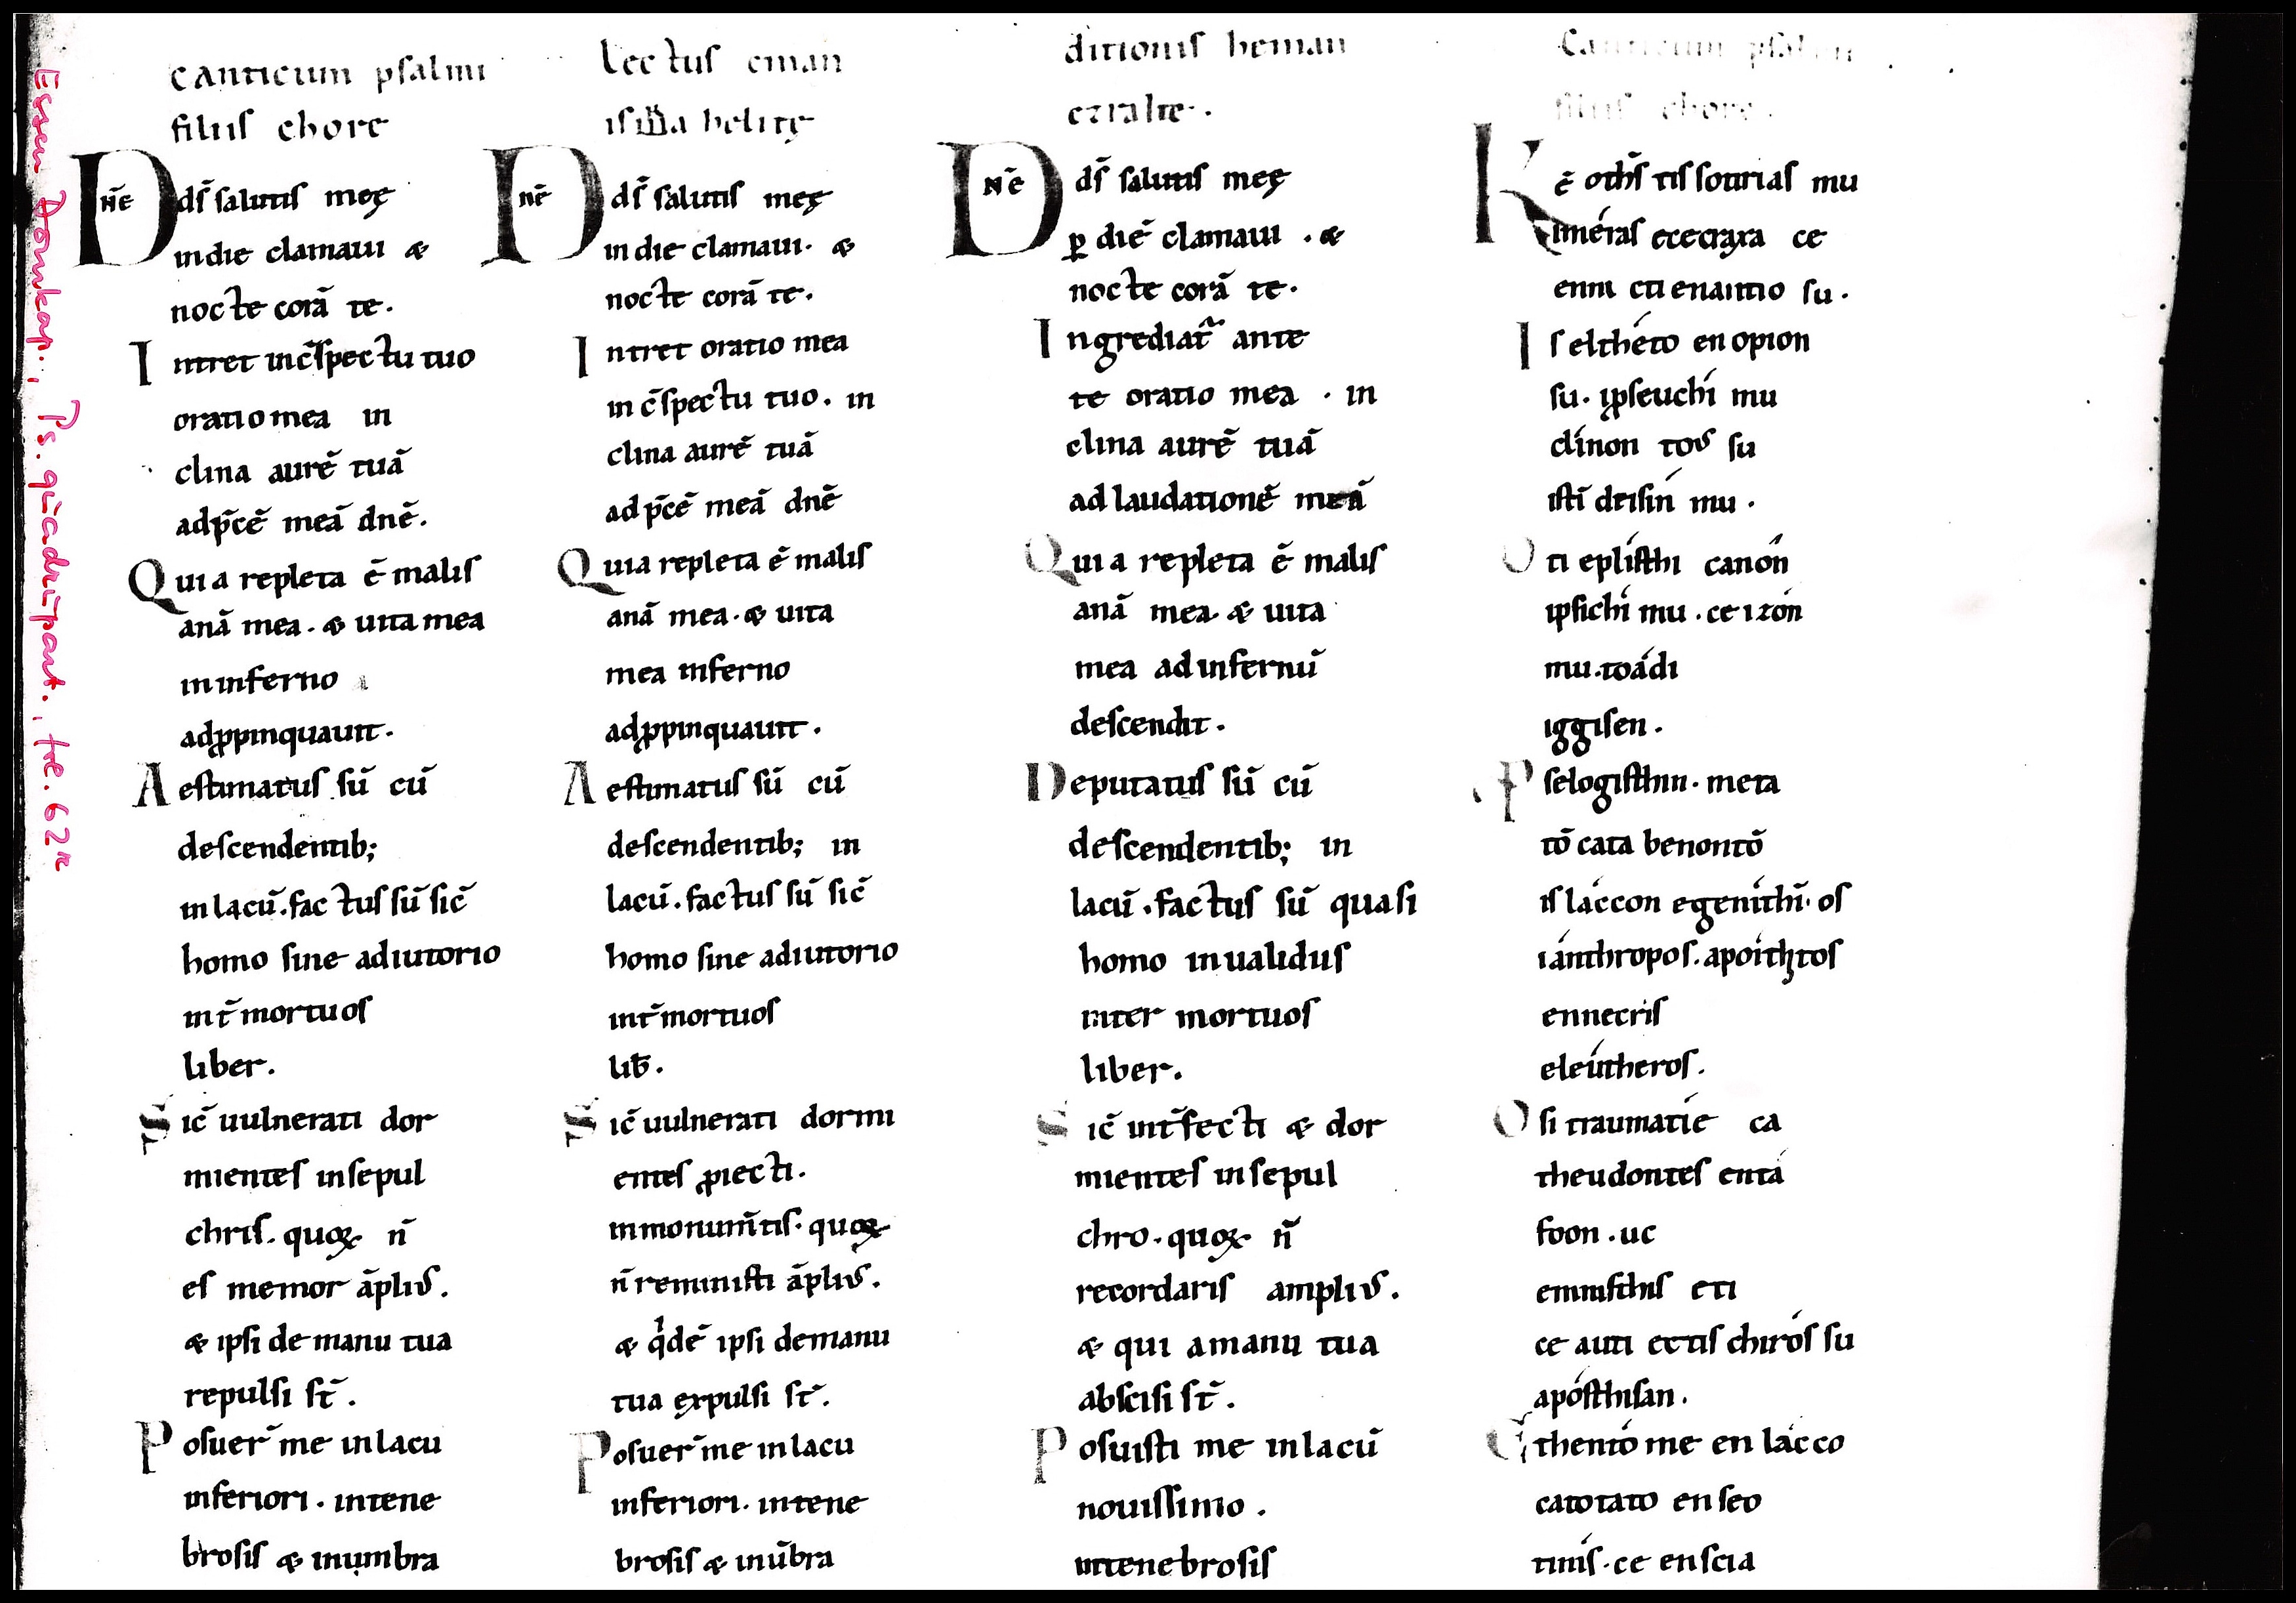 canticum psalmi
filiis chore
Dnē dſ̄ ſalutiſ meę
indie clamaui &
nocte corā te.
Intret inc̄ſpectu tuo
oratio mea in
clina aurē tuā
adp̄cē meā dnē.
Quia repleta ē maliſ
anā mea. & uita mea
ininferno
adꝓpinquauit.
Aeſtimatuſ ſū cū
deſcendentib;
inlacū. factuſ ſū ſic̄
homo ſine adiutorio
int̄ mortuoſ
liber.
Sic̄ uulnerati dor
mienteſ inſepul
chriſ. quoꝝ n̄
eſ memor āpliꝰ.
& ipſi de manu tua
repulſi ſt̄.
Poſuer̄ me inlacu
inferiori. intene
broſiſ & inumbra
lectuſ eman
helitę
Dnē dſ̄ ſalutiſ meę
indie clamaui. &
nocte corā te.
Intret oratio mea
in c̄ſpectu tuo. in
clina aurē tuā
ad p̄cē meā dnē
Quia repleta ē maliſ
anā mea. & uita
mea inferno
adꝓpinquauit.
Aeſtimatuſ ſū cū
deſcendentib; in
lacū. factuſ ſū ſic̄
homo ſine adiutorio
int̄ mortuoſ
lib̄.
Sic̄ uulnerati dormi
enteſ ꝓiecti.
inmonum̄tiſ. quoꝝ
n̄ reminiſti āpliꝰ.
& q̇dē ipſi demanu
tua expulſi ſt̄.
Poſuer̄ me inlacu
inferiori. intene
broſiſ & inūbra
ditioniſ heman
ezraite.
Dnē dſ̄ ſalutiſ meę
ꝑ diē clamaui. &
nocte corā te.
Ingrediat̄ ante
te oratio mea. in
clina aurē tuā
ad laudationē meā
Quia repleta ē maliſ
anā mea. & uita
mea ad infernū
deſcendit.
Deputatuſ ſū cū
deſcendentib; in
lacū. factuſ ſū quaſi
homo inualiduſ
inter mortuoſ
liber.
Sic̄ int̄fecti & dor
mienteſ inſepul
chro. quoꝝ n̄
recordariſ ampliꝰ.
& qui amanu tua
abſciſi ſt̄.
Poſuiſti me inlacū
nouiſſimo.
intenebroſiſ
Canticum pſalmi
filiiſ chore.
Kē oth̄ſ tiſ ſotiriaſ mu
iméraſ ececraxa ce
enni cti enantio ſu.
Iſ elthéto enopion
ſu. ipſeuchí mu
clínon toꝰ ſu
iſti deiſín mu.
Oti eplíſthi canón
ipſichí mu. ce i zoń
mu. toádi
iggiſen.
ſelogiſthin. meta
tō cata benontō
iſ láccon egeníthī. oſ
iánthropoſ. apoithtoſ
ennecriſ
eleútheroſ.
Oſi traumatíe ca
theudonteſ entá
foon. uc
emniſthiſ eti
ce auti ectiſ chiróſ ſu
apóſthiſan.
Ethentó me en lácco
catotato enſco
tiníſ. ce enſcia
Essen Domkap., Ps. quadripart., tre. 62r